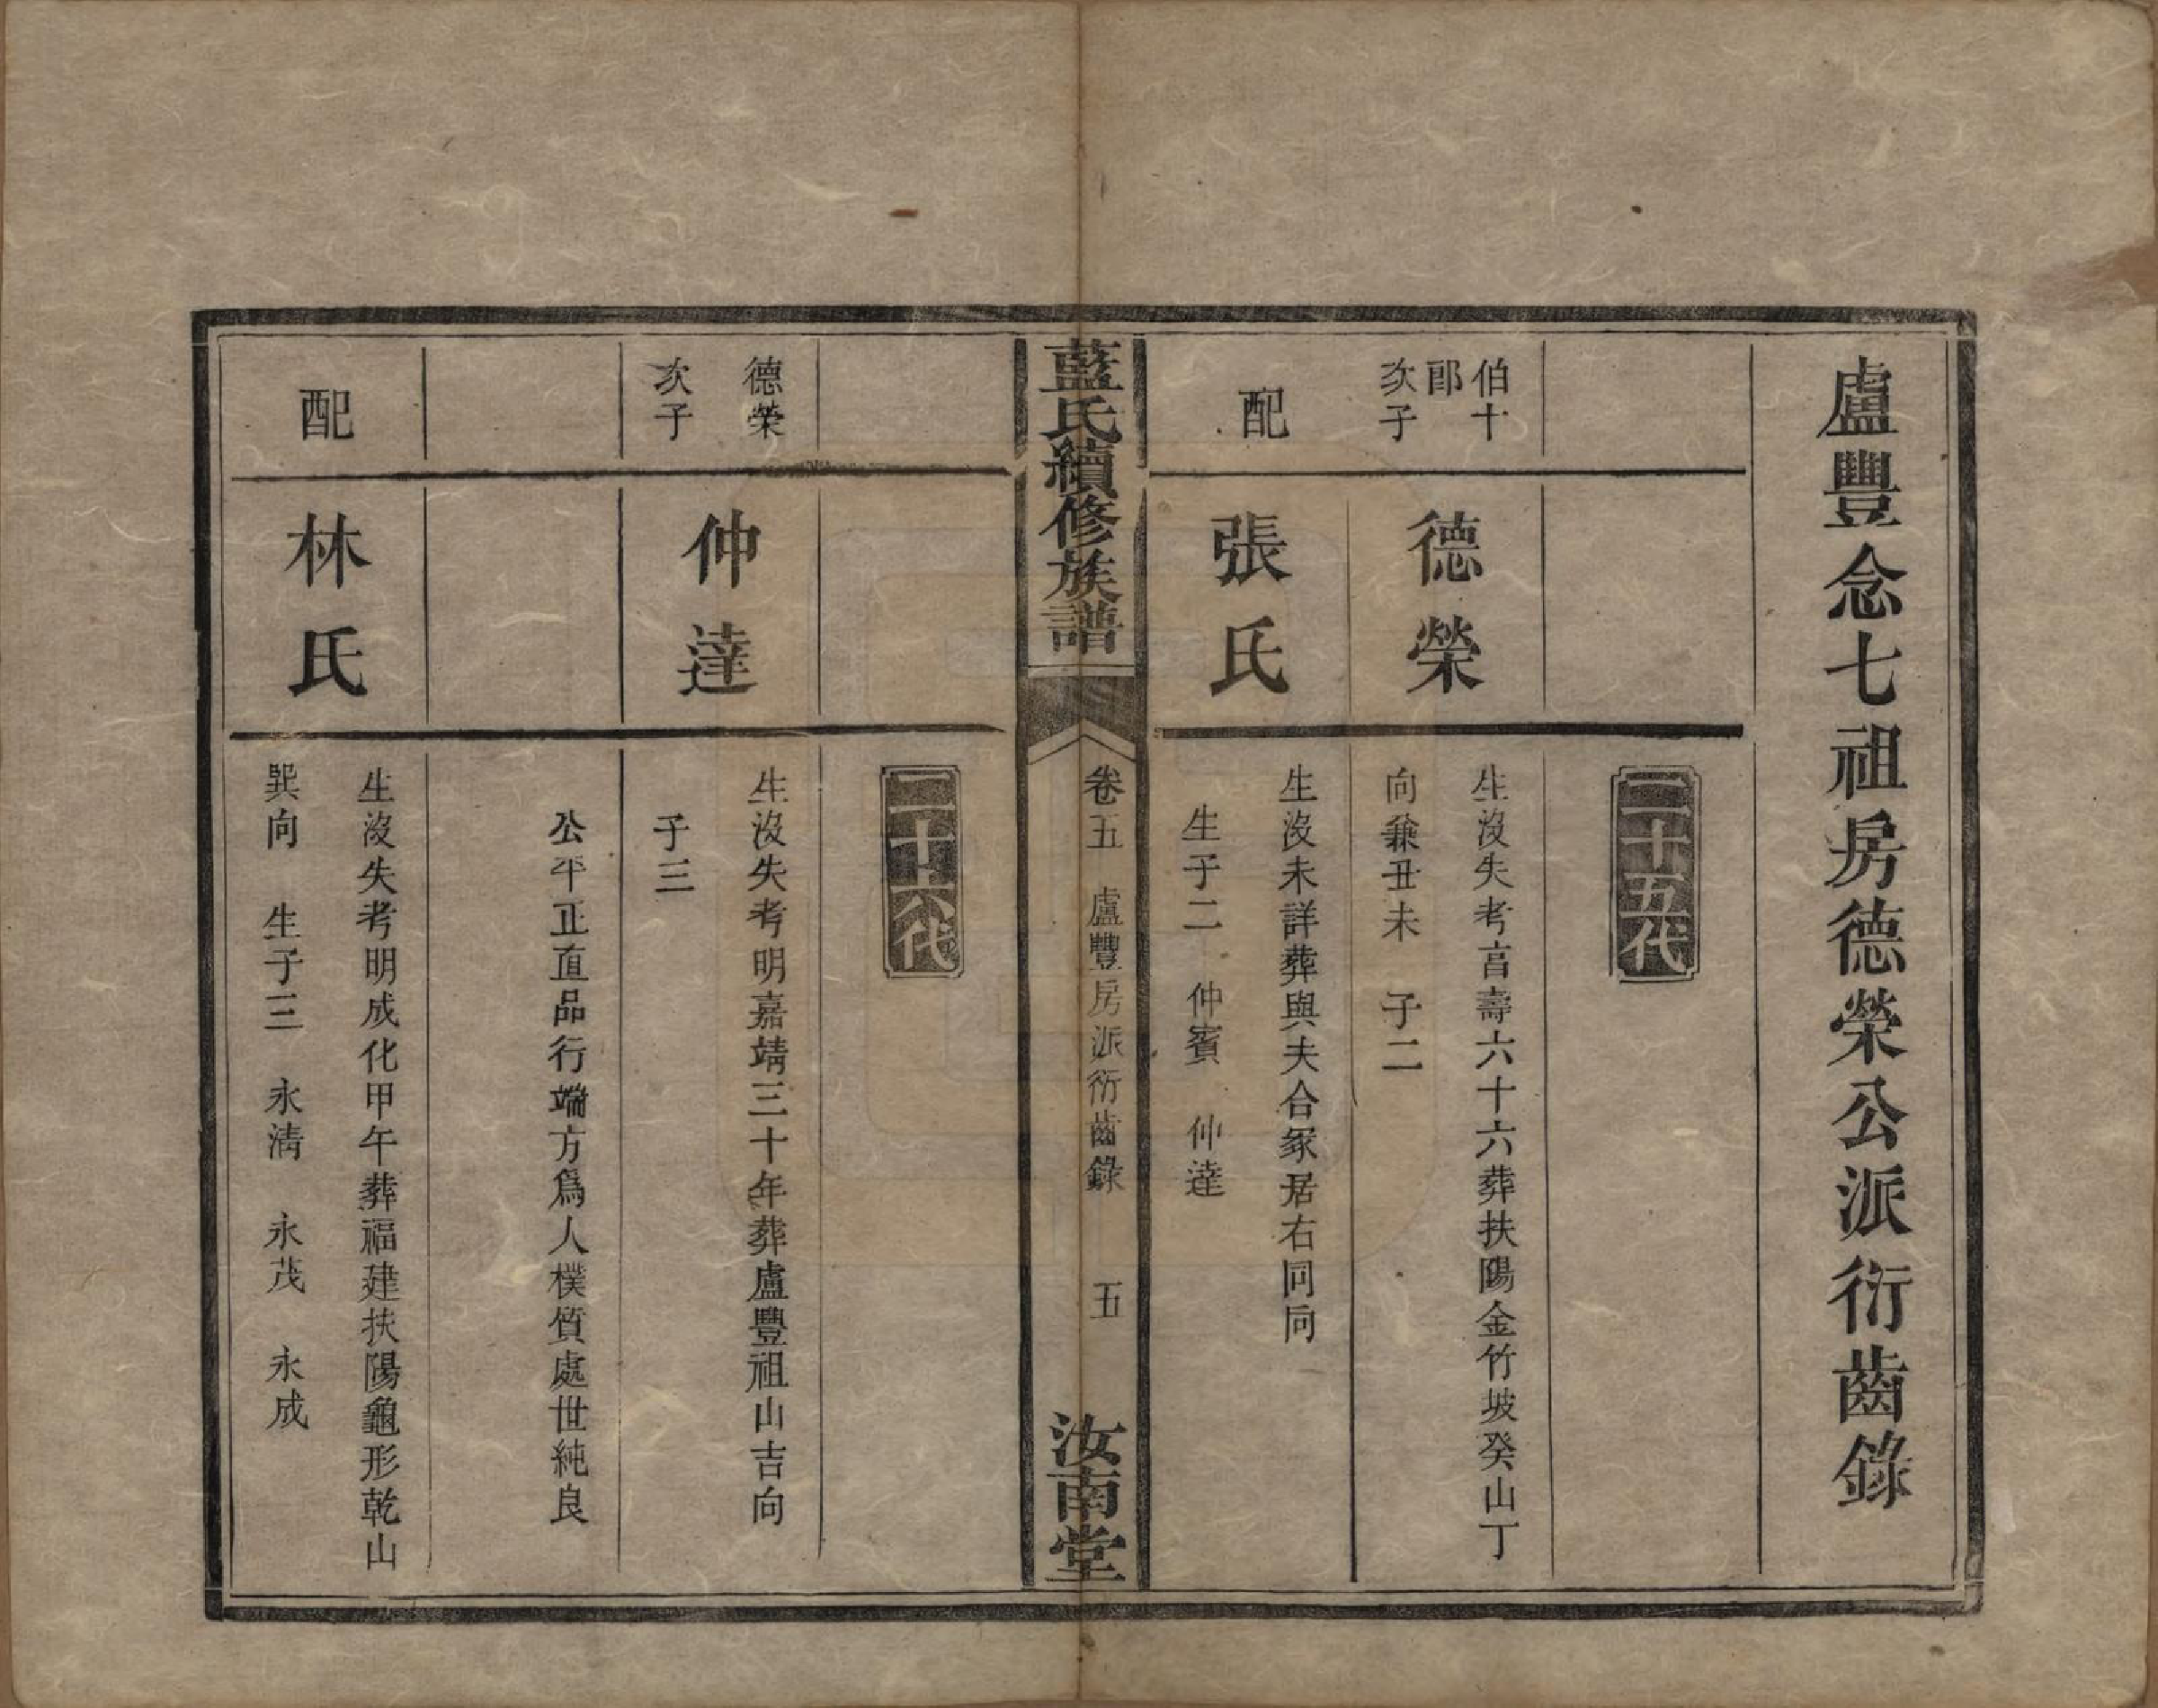 盧豐念七祖房德榮公派衍齒錄
二十五代
伯十
郎
次子
德榮
生沒失考言壽六十六葬扶陽金竹坡癸山丁
向兼丑未　子二
配
張氏
生沒未詳葬與夫合冢居右同向
生子二　仲賓　仲達
藍氏續修族譜
卷五　盧豐房派衍齒錄　五
汝南堂
二十六代
德榮
次子
仲達
生沒失考明嘉靖三十年葬盧豐祖山吉向
子三
公平正直品行端方為人樸質處世純良
配
林氏
生沒失考明成化甲午葬福建扶陽龜形乾山
巽向　生子三　永清　永茂　永成